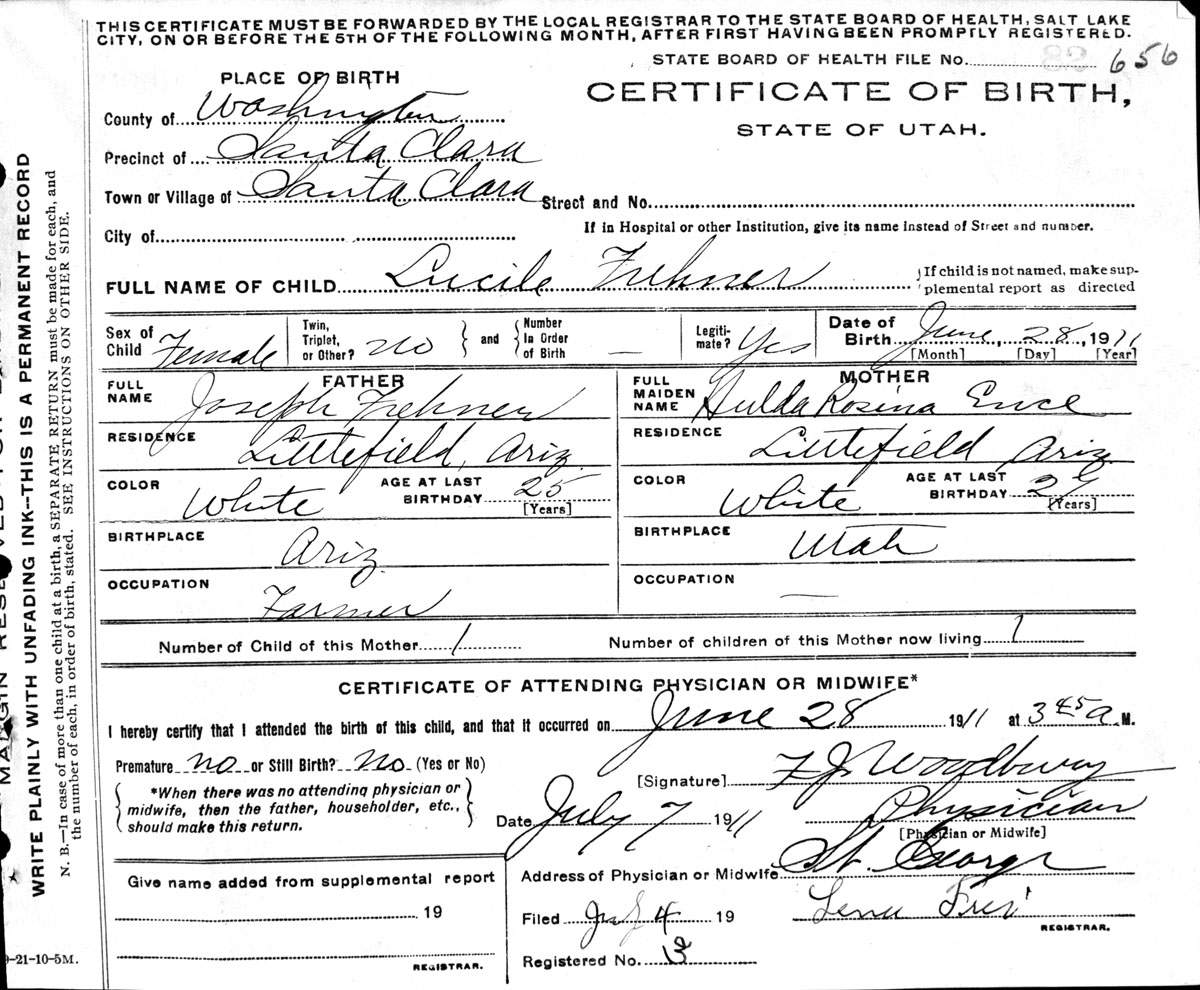 THIS CERTIFICATE MUST BE FORWARDED BY THE LOCAL REGISTRAR TO THE STATE BOARD OF HEALTH, SALT LAKE
CITY, ON OR BEFORE THE 5TH OF THE FOLLOWING MONTH, AFTER FIRST HAVING BEEN PROMPTLY REGISTERED.
STATE BOARD OF HEALTH FILE NO. 656
PLACE OF BIRTH
CERTIFICATE OF BIRTH,
STATE OF UTAH.
County of Washington
Precinct of Santa Clara
Town or Village of Santa Clara Street and No.
City of
If in Hospital or other Institution, give its name instead of Street and number.
FULL NAME OF CHILD Lucile Frehner
If child is not named, make sup-
plemental report as directed
Sex of Child Female
Twin, Triplet, or Other? no and Number In Order of Birth —
Legiti-mate? Yes
Date of Birth June 28, 1911
[Month] [Day] [Year]
FATHER
FULL NAME Joseph Frehner
RESIDENCE Littlefield, Ariz
COLOR White AGE AT LAST BIRTHDAY 25 [Years]
BIRTHPLACE Ariz.
OCCUPATION Farmer
MOTHER
FULL MAIDEN NAME Hulda Rosina Ence
RESIDENCE Littlefield Ariz
COLOR White AGE AT LAST BIRTHDAY [Years]
BIRTHPLACE Utah
OCCUPATION —
Number of Child of this Mother 1 Number of children of this Mother now living 1
CERTIFICATE OF ATTENDING PHYSICIAN OR MIDWIFE*
I hereby certify that I attended the birth of this child, and that it occurred on June 28 1911 at 3 45 a M.
Premature no or Still Birth? no (Yes or No)
*When there was no attending physician or
midwife, then the father, householder, etc.,
should make this return.
[Signature] F. J. Woodbury
Date July 7 1911 Physician
[Physician or Midwife]
Address of Physician or Midwife St. George
Give name added from supplemental report
19
REGISTRAR.
Filed 4 19
REGISTRAR.
Registered No.
MARGIN RESERVED FOR
WRITE PLAINLY WITH UNFADING INK--THIS IS A PERMANENT RECORD
N. B.—In case of more than one child at a birth, a SEPARATE RETURN must be made for each, and
the number of each, in order of birth, stated. SEE INSTRUCTIONS ON OTHER SIDE.
9-21-10-5M.